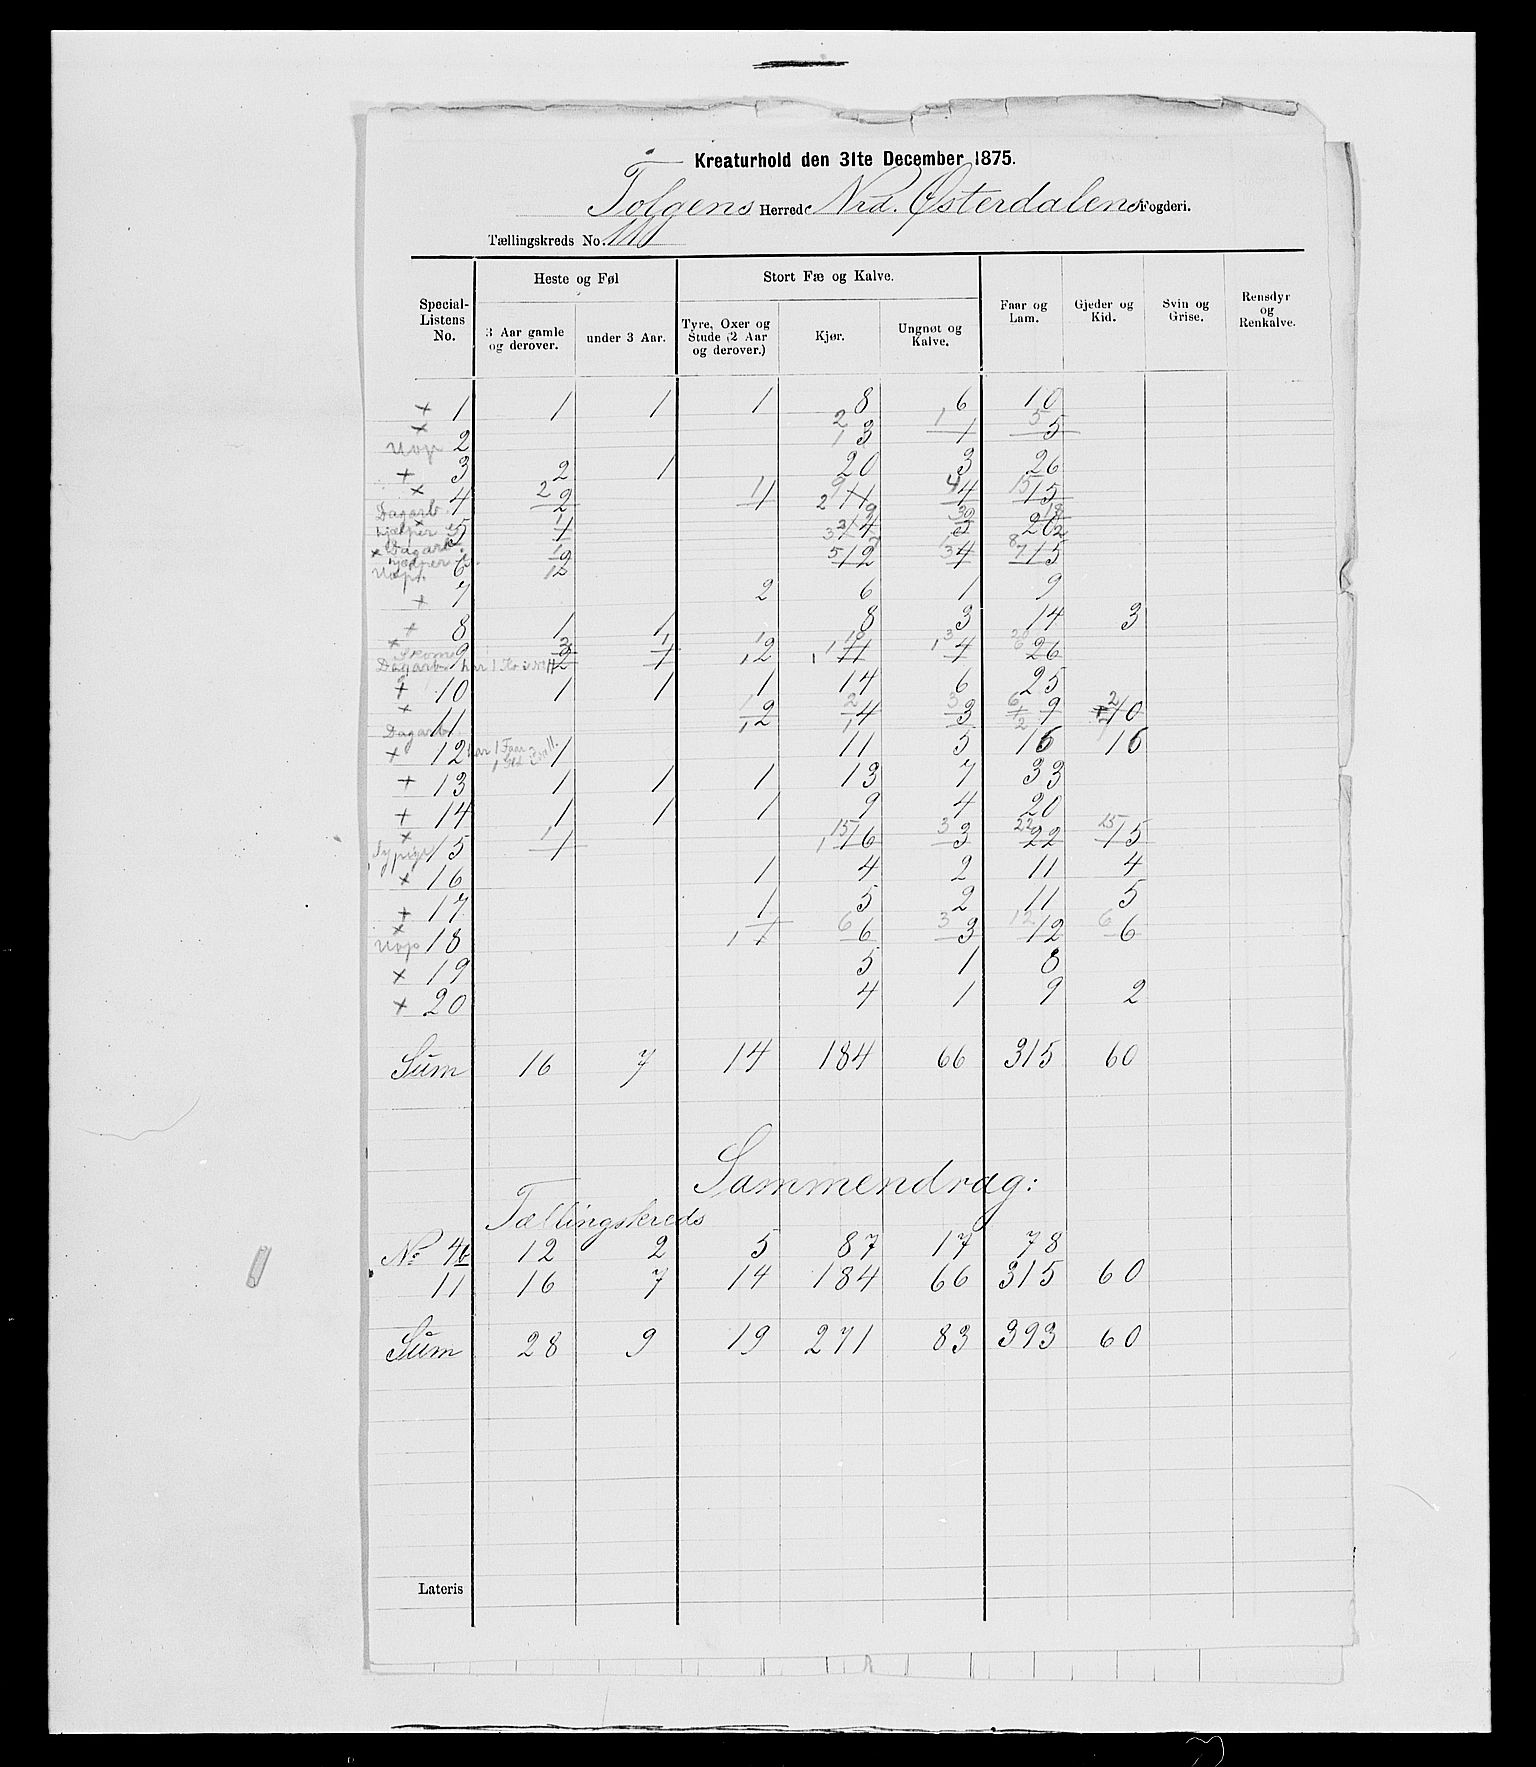 Kreaturhold den 31te December 1875.
Tolgens Herred Nrd. Østerdalens Fogderi.
Tællingskreds No. 11
Special-Listens No. | Heste og Føl | Stort Fæ og Kalve. | Faar og Lam. | Gjeder og Kid. | Svin og Grise. | Rensdyr og Renkalve.
3 Aar gamle og derover. | under 3 Aar. | Tyre, Oxer og Stude (2 Aar og derover.) | Kjør. | Ungnøt og Kalve.
+ 1 1 1 1 8 6 10
+ 2 3 1 5
+ 3 2 1 20 3 26
+ 4 2 1 11 4 15
Dagarb.
+ 5 1 14 5 20
hjælper
+ Dagarb.
6 2 12 4 15
hjælper
+ 7 2 6 1 9
+ 8 1 1 8 3 14 3
+ 9 2 1 2 11 4 26
Dagarb. har 1
+ 10 1 1 1 14 6 25
+ 11 2 4 3 9 10
Dagarb.
+ 12 har 1 Faar 1 11 5 16 16
+ 13 1 1 1 13 7 33
+ 14 1 1 1 9 4 20
+ 15 1 16 3 22 15
+ 16 1 4 2 11 4
+ 17 1 5 2 11 5
+ 18 1 6 3 12 6
+ 19 5 1 8
+ 20 4 1 9 2
Sum 16 7 14 184 66 315 60
Sammendrag:
Tællingskreds
No 4b 12 2 5 87 17 78
11 16 7 14 184 66 315 60
Sum 28 9 19 271 83 393 60
Lateris